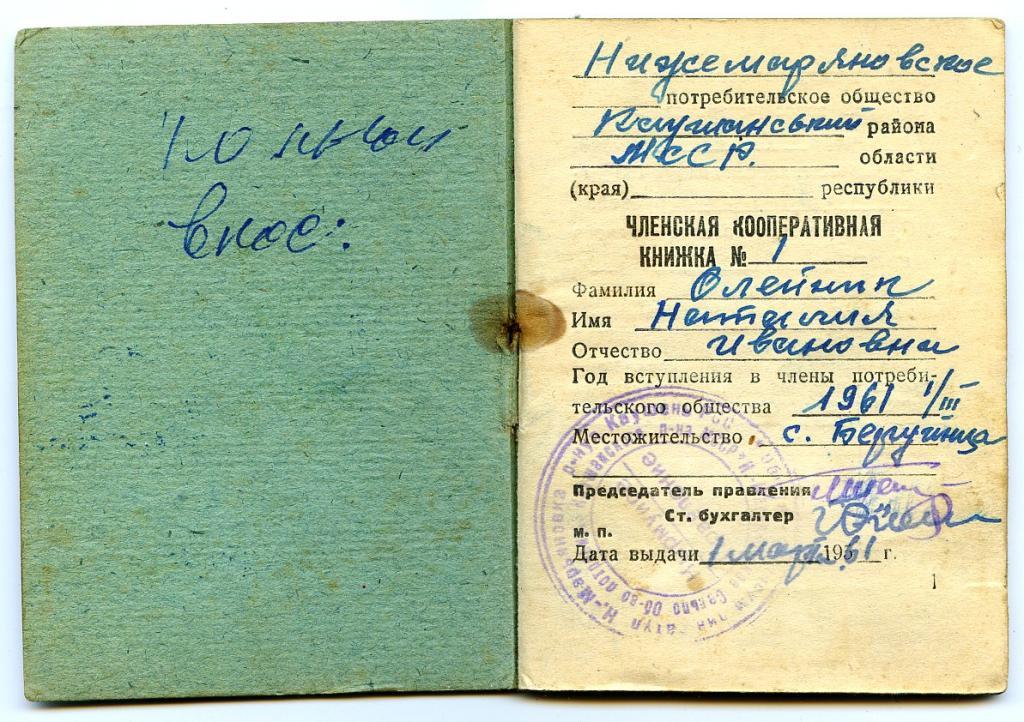 внос:
Нижемаряновское
потребительское общество
Каушанський района
МССР. области
(края) республики
ЧЛЕНСКАЯ КООПЕРАТИВНАЯ
КНИЖКА № 1
Фамилия Олейник
Имя Наталия
Отчество Ивановна
Год вступления в члены потреби-
тельского общества 1961 1/III
Местожительство с.
Председатель правления
Ст. бухгалтер
М. П.
Дата выдачи 1 март 1961 г.
1